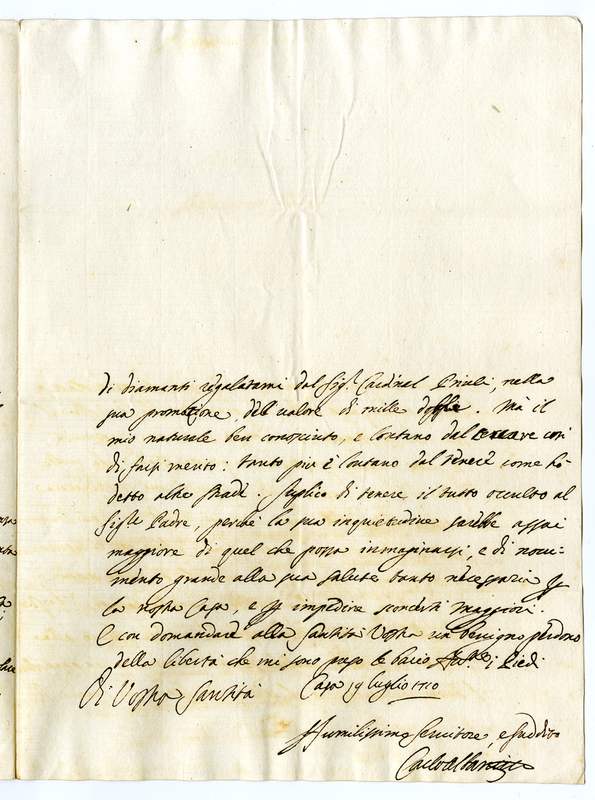 di diamanti regalatami dal Sig.r Cardinal Priuli, nella
sua promozione, del valore di mille doppie. Mà il
mio naturale ben conosciuto, e lontano dal cercare così
di farsi merito: tanto più è lontano dal tenere come hò
detto altre strade. Suplico di tenere il tutto occulto al
Sig.re Padre, perche la sua inquietudine sarebbe assai
maggiore di quel che possa immaginarsi, e di nocu-
mento grande alla sua salute tanto necessaria p
la nostra Casa, e p impedire sconcerti maggiori.
E con domandare alla Santità Vostra un benigno perdono
della libertà che mi sono preso le bacio i Piedi
Di Vostra Santità Casa 19 luglio 1710
Humilissimo Servitore, e Suddito
Carlo Albani